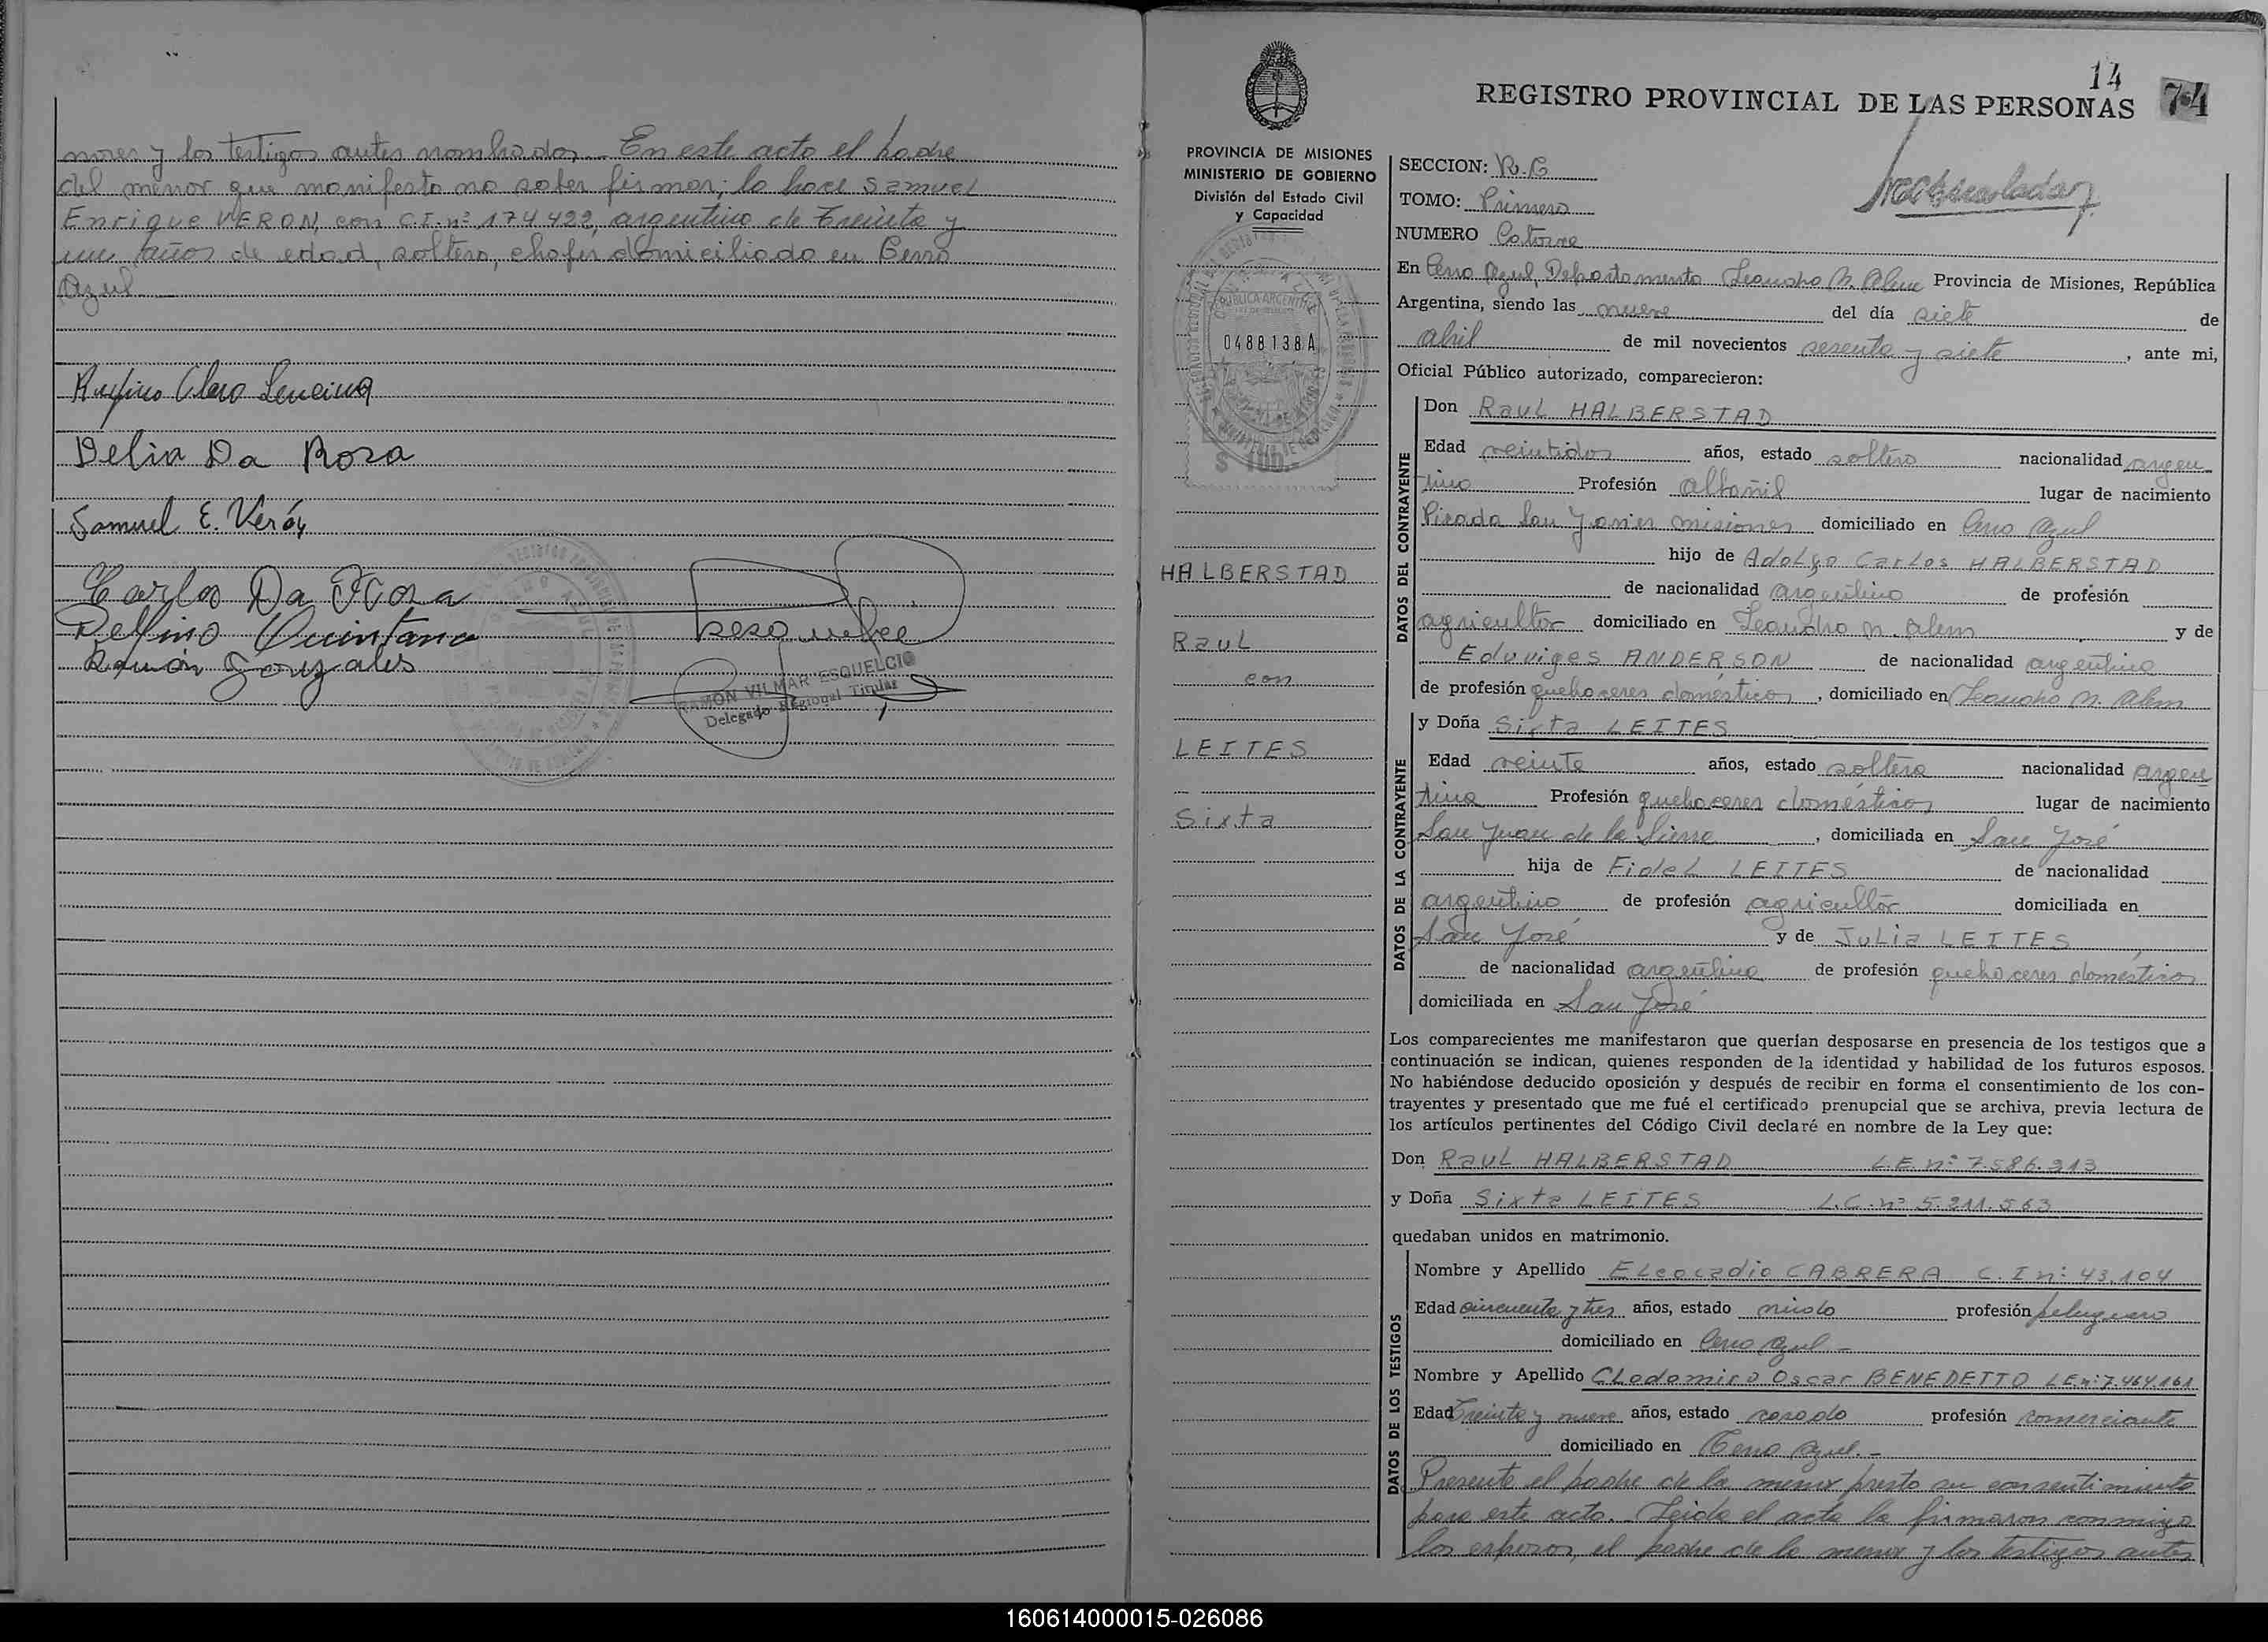 nores y los testigos antes nombrados. En este acto el padre
del menor que manifesto no saber firmar, lo hace Samuel
Enrique VERON, con C.I. nº 174.422, argentino de treinta y
un años de edad, soltero, chofer domiciliado en Cerro
Azul
Rufino Claro
Delia Da Rosa
Samuel E. Verón
Carlos Da Rosa
Delfino Quintana
Ramón Gonzales
RAMON VILMAR ESQUELCIO
Delegado Regional Titular
14
74
REGISTRO PROVINCIAL DE LAS PERSONAS
PROVINCIA DE MISIONES
MINISTERIO DE GOBIERNO
División del Estado Civil
y Capacidad
REPUBLICA ARGENTINA
0488138A
$ 100.-
HALBERSTAD
Raul
con
LEITES
Sixta
SECCION: R.C.
TOMO: Primero
NUMERO Catorce
En Cerro Azul, Departamento Leandro N. Alem Provincia de Misiones, República
Argentina, siendo las nueve del día siete de
abril de mil novecientos sesenta y siete, ante mi,
Oficial Público autorizado, comparecieron:
DATOS DEL CONTRAYENTE
Don Raul HALBERSTAD
Edad veintidos años, estado soltero nacionalidad argen
tino Profesión albañil lugar de nacimiento
Picada San Javier misiones domiciliado en Cerro Azul
hijo de Adolfo Carlos HALBERSTAD
de nacionalidad argentino de profesión
agricultor domiciliado en Leandro N. Alem y de
Eduviges ANDERSON de nacionalidad argentina
de profesión quehaceres domésticos, domiciliado en Leandro N. Alem
DATOS DE LA CONTRAYENTE
y Doña Sixta LEITES
Edad veinte años, estado soltera nacionalidad argen
tina Profesión quehaceres domésticos lugar de nacimiento
San Juan de la Sierra, domiciliada en San José
hija de Fidel LEITES de nacionalidad
argentino de profesión agricultor domiciliada en
San José y de Julia LEITES
de nacionalidad argentina de profesión quehaceres domésticos
domiciliada en San José
Los comparecientes me manifestaron que querían desposarse en presencia de los testigos que a
continuación se indican, quienes responden de la identidad y habilidad de los futuros esposos.
No habiéndose deducido oposición y después de recibir en forma el consentimiento de los con-
trayentes y presentado que me fué el certificado prenupcial que se archiva, previa lectura de
los artículos pertinentes del Código Civil declaré en nombre de la Ley que:
Don Raul HALBERSTAD L.E. nº 7.586.313
y Doña Sixta LEITES L.C. nº 5.211.563
quedaban unidos en matrimonio.
DATOS DE LOS TESTIGOS
Nombre y Apellido Eleocadio CABRERA C.I nº 43.104
Edad cincuenta y tres años, estado viudo profesión peluquero
domiciliado en Cerro Azul -
Nombre y Apellido Clodomiro Oscar BENEDETTO LE nº 7.464.161
Edad Treinta y nueve años, estado casado profesión comerciante
domiciliado en Cerro Azul. -
Presente el padre de la menor presto su consentimiento
para este acto. Leida el acta la firmaron conmigo
los esposos, el padre de la menor y los testigos antes
160614000015-026086